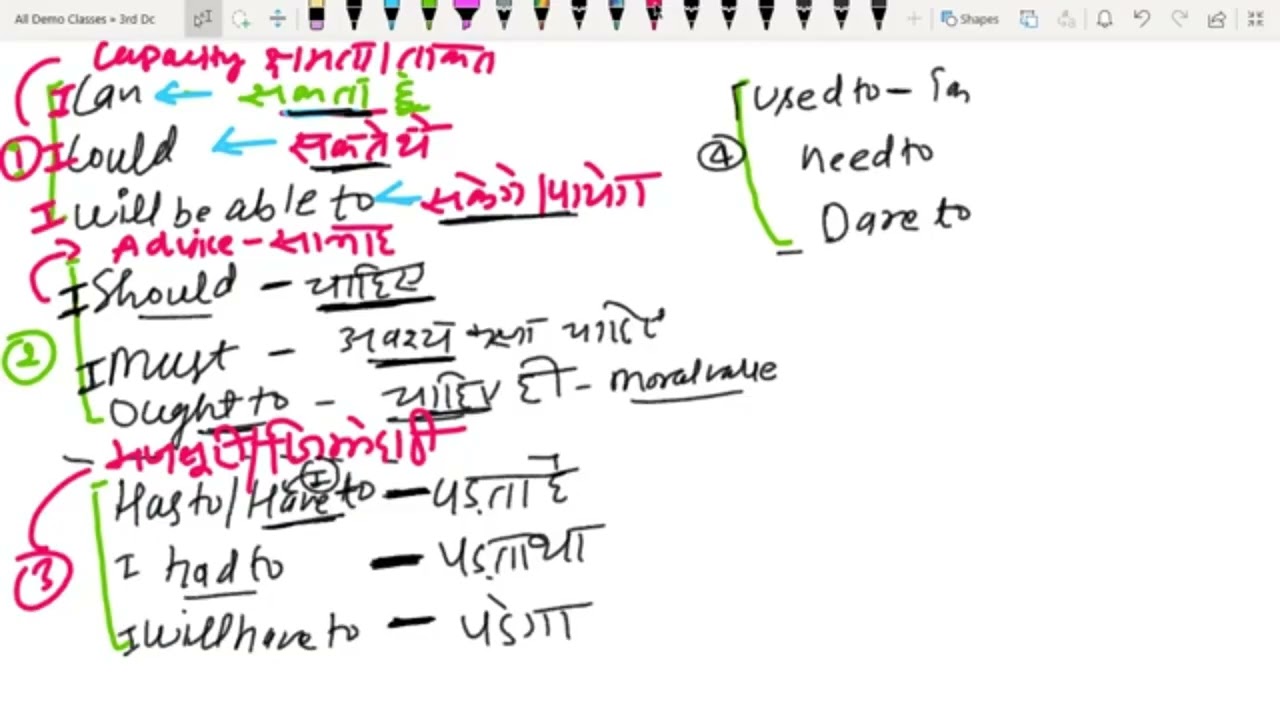 All Demo Classes » 3rd Dc
Shapes
Capacity क्षमता/ताकत
I Can ← सकता है
① I Could ← सकते थे
I will be able to ← सकेंगे/पायेगा
Advice - सलाह
I Should - चाहिए
② I Must - अवश्य
Ought to - चाहिए ही - moral value
मजबूरी/जिम्मेदारी
Has to/Have to - पड़ता है
I
③ I had to - पड़ता था
I will have to - पड़ेगा
used to -
④ need to
Dare to